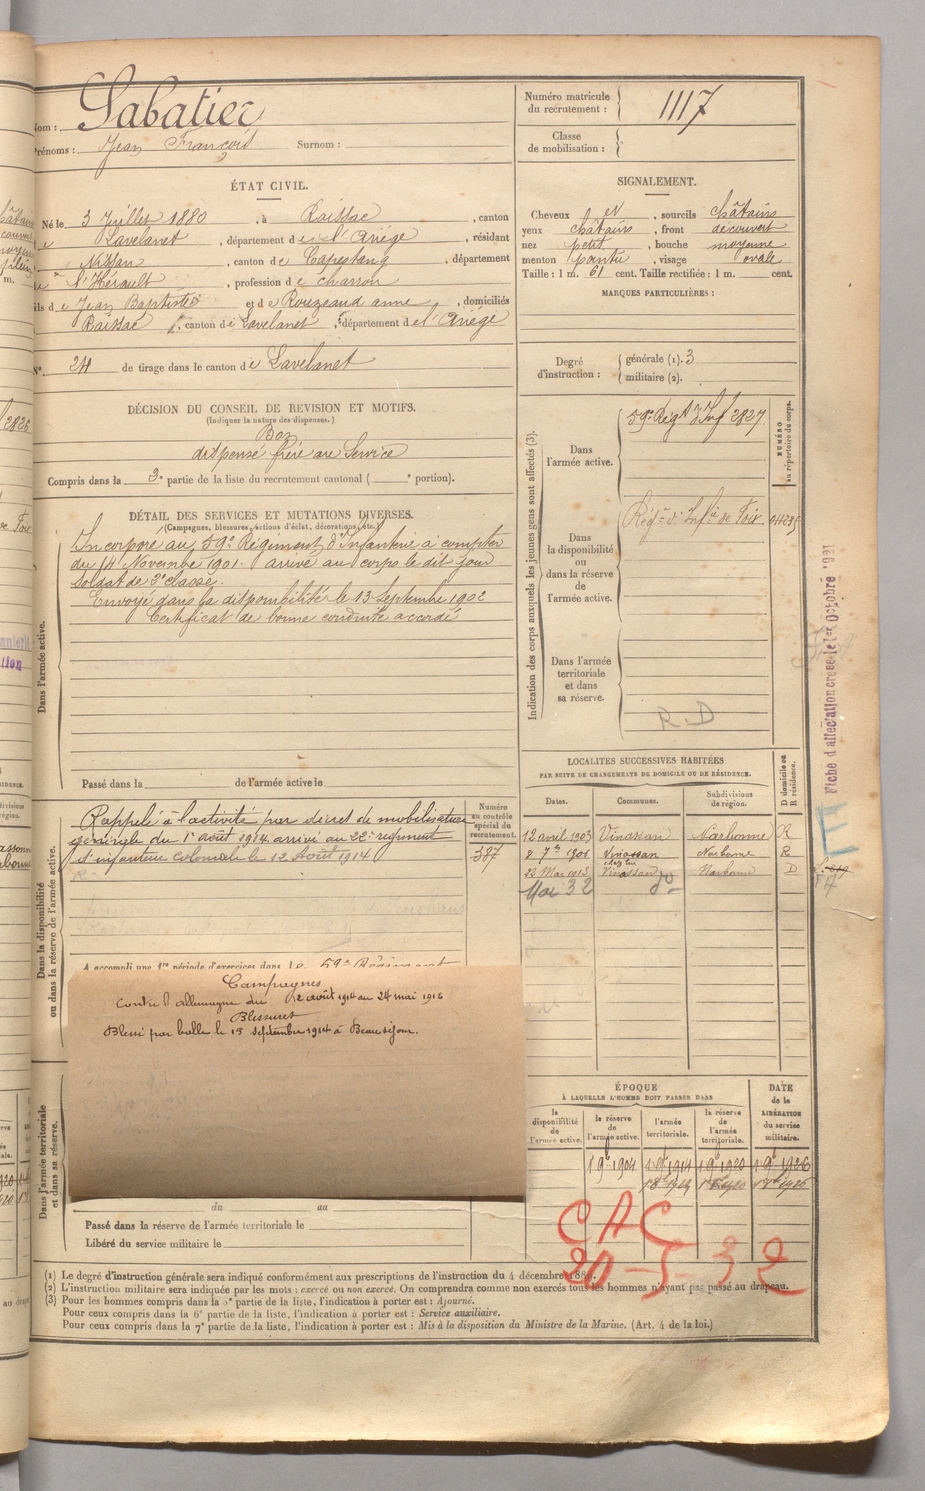 Nom : Sabatier
Prénoms : Jean François Surnom :
Numéro matricule du recrutement : 1117
Classe de mobilisation :
ÉTAT CIVIL.
Né le 3 Juillet 1880, à Raissac, canton
de Lavelanet, département de l'Ariège, résidant
à Nissan, canton de Capestang, département
de l'Hérault, profession de charron
fils de Jean Baptiste et de Rouzeaud anne, domiciliés
Raissac, canton de Lavelanet, département de l'Ariège
N° 24 de tirage dans le canton de Lavelanet
SIGNALEMENT.
Cheveux et, sourcils châtains
yeux châtains, front découvert
nez petit, bouche moyenne
menton pointu, visage ovale
Taille : 1 m. 61 cent. Taille rectifiée : 1 m. cent.
MARQUES PARTICULIÈRES :
Degré d'instruction : générale (1). 3
militaire (2).
DÉCISION DU CONSEIL DE REVISION ET MOTIFS.
(Indiquer la nature des dispenses.)
Bon
dispensé frère au Service
Compris dans la 2e partie de la liste du recrutement cantonal ( e portion).
DÉTAIL DES SERVICES ET MUTATIONS DIVERSES.
(Campagnes, blessures, actions d'éclat, décorations, etc.)
Dans l'armée active.
Incorporé au 59e Régiment d'Infanterie à compter
du 14 Novembre 1901. arrivé au corps le dit jour
soldat de 2e classe.
Envoyé dans la disponibilité le 13 Septembre 1902
Certificat de bonne conduite accordé
Passé dans la de l'armée active le
Indication des corps auxquels les jeunes gens sont affectés (3).
NUMÉRO au répertoire du corps.
Dans l'armée active.
59e Régt d'Inf 2827
Dans la disponibilité ou dans la réserve de l'armée active.
Régt d'Infie de Foix
Dans l'armée territoriale et dans sa réserve.
R.D
Fiche d'affectation créée le 1er Octobre 1921
E
Dans la disponibilité ou dans la réserve de l'armée active.
Rappelé à l'activité par décret de mobilisation
générale du 1er août 1914 arrivé au 22e régiment
d'infanterie coloniale le 12 Août 1914
Numéro au contrôle spécial du recrutement.
387
A accompli une 1re période d'exercices dans le 59e Régiment
Campagnes
Contre l'allemagne du 12 août 1914 au 24 mai 1916
Blessures
Blessé par balle le 15 septembre 1914 à Beauséjour.
LOCALITÉS SUCCESSIVES HABITÉES
PAR SUITE DE CHANGEMENTS DE DOMICILE OU DE RÉSIDENCE.
D domicile ou R résidence.
Dates. Communes. Subdivisions de région.
12 avril 1903 Vinassan Narbonne R
Vinassan Narbonne R
22 Mai 1913 Vinassan Narbonne D
Mai 32 do
ÉPOQUE
À LAQUELLE L'HOMME DOIT PASSER DANS
DATE de la LIBÉRATION du service militaire.
la disponibilité de l'armée active.
la réserve de l'armée active.
l'armée territoriale.
la réserve de l'armée territoriale.
1 9b 1904 1 8b 1914 1 9b 1920 1 9b 1926
CAC
20-5-32
Dans l'armée territoriale et dans sa réserve.
du au
Passé dans la réserve de l'armée territoriale le
Libéré du service militaire le
(1) Le degré d'instruction générale sera indiqué conformément aux prescriptions de l'instruction du 4 décembre 1889.
(2) L'instruction militaire sera indiquée par les mots : exercé ou non exercé. On comprendra comme non exercés tous les hommes n'ayant pas passé au drapeau.
(3) Pour les hommes compris dans la 5e partie de la liste, l'indication à porter est : Ajourné.
Pour ceux compris dans la 6e partie de la liste, l'indication à porter est : Service auxiliaire.
Pour ceux compris dans la 7e partie de la liste, l'indication à porter est : Mis à la disposition du Ministre de la Marine. (Art. 4 de la loi.)